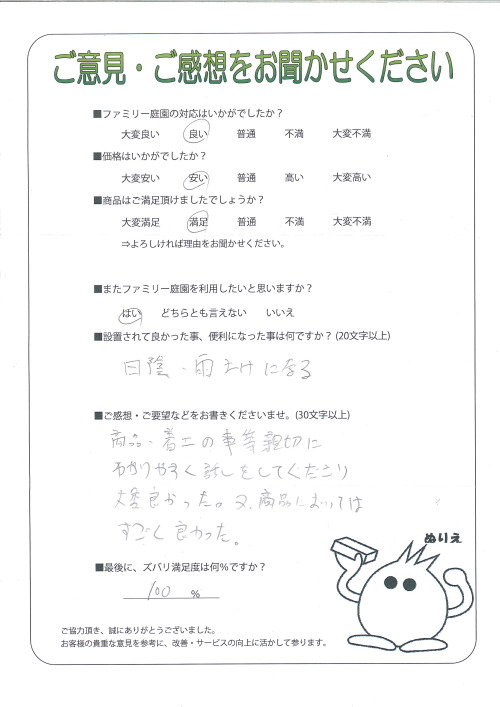 ご意見・ご感想をお聞かせください
■ファミリー庭園の対応はいかがでしたか？
大変良い 良い 普通 不満 大変不満
■価格はいかがでしたか？
大変安い 安い 普通 高い 大変高い
■商品はご満足頂けましたでしょうか？
大変満足 満足 普通 不満 大変不満
⇒よろしければ理由をお聞かせください。
■またファミリー庭園を利用したいと思いますか？
はい どちらとも言えない いいえ
■設置されて良かった事、便利になった事は何ですか？(20文字以上)
日陰・雨よけになる
■ご感想・ご要望などをお書きくださいませ。(30文字以上)
商品・着工の事等親切に
わかりやすく話しをしてくださり
大変良かった。又、商品においては
すごく良かった。
ぬりえ
■最後に、ズバリ満足度は何％ですか？
100 %
ご協力頂き、誠にありがとうございました。
お客様の貴重な意見を参考に、改善・サービスの向上に活かして参ります。